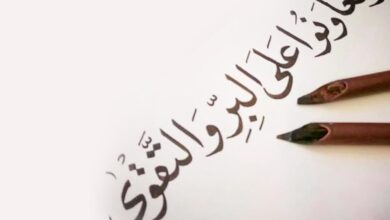 تعاونوا على البِرِّ وَالتَّقْوَى